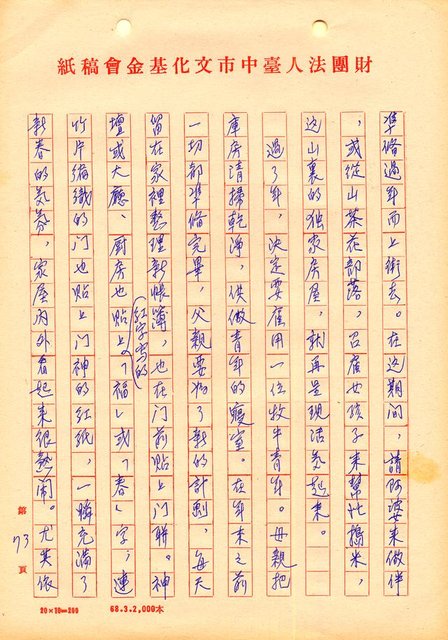 財團法人臺中市文化基金會稿紙
準備過年而上街去。在这期间，請阿婆来做伴
，或從山茶花部落，召雇女孩子来幫忙搗米，
这山裏的独家房屋，就再呈現活気起来。
過了年，決定要雇用一位牧牛青年。母親把
庫房清掃乾净，供做青年的寢室。在年末之前
一切都準備完畢，父親要為了新的計劃，每天
留在家裡整理新帳簿，也在门前貼上门联。神
壇或大廳、厨房也貼上红字寫的「福」或「春」字，連
竹片編織的门也貼上门神的红纸，一瞬充滿了
新春的気氛，家屋内外看起来很熱鬧。尤其依
第73頁
20×10=200 68.3.2,000本